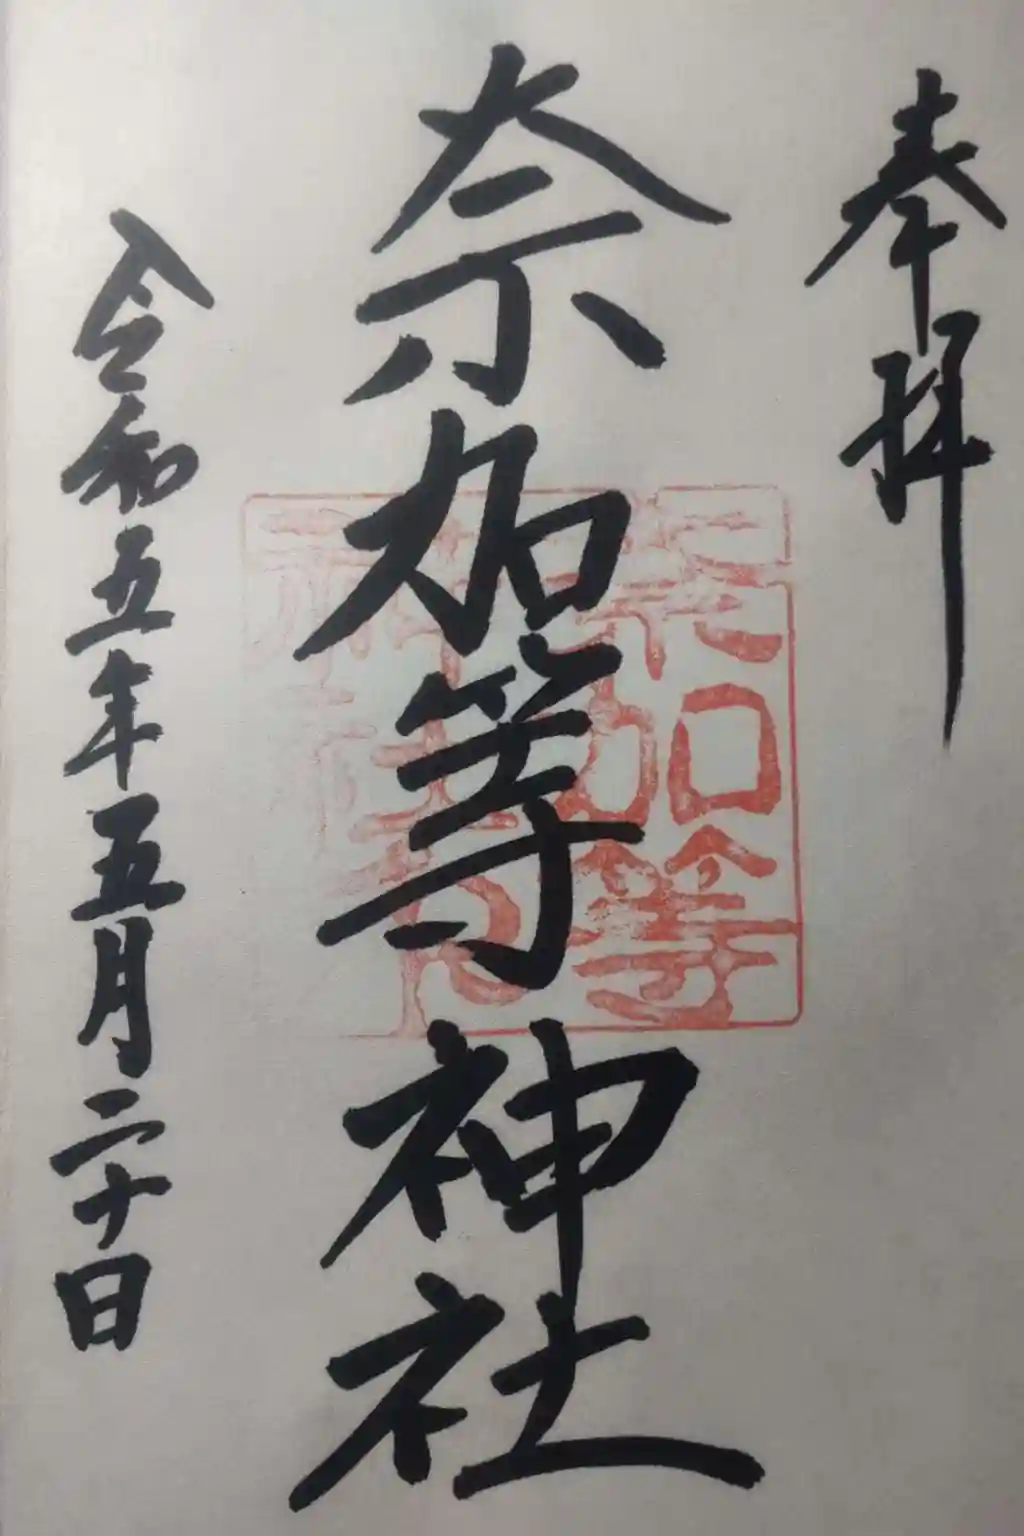 奉拝
奈加等神社
令和五年五月二十日